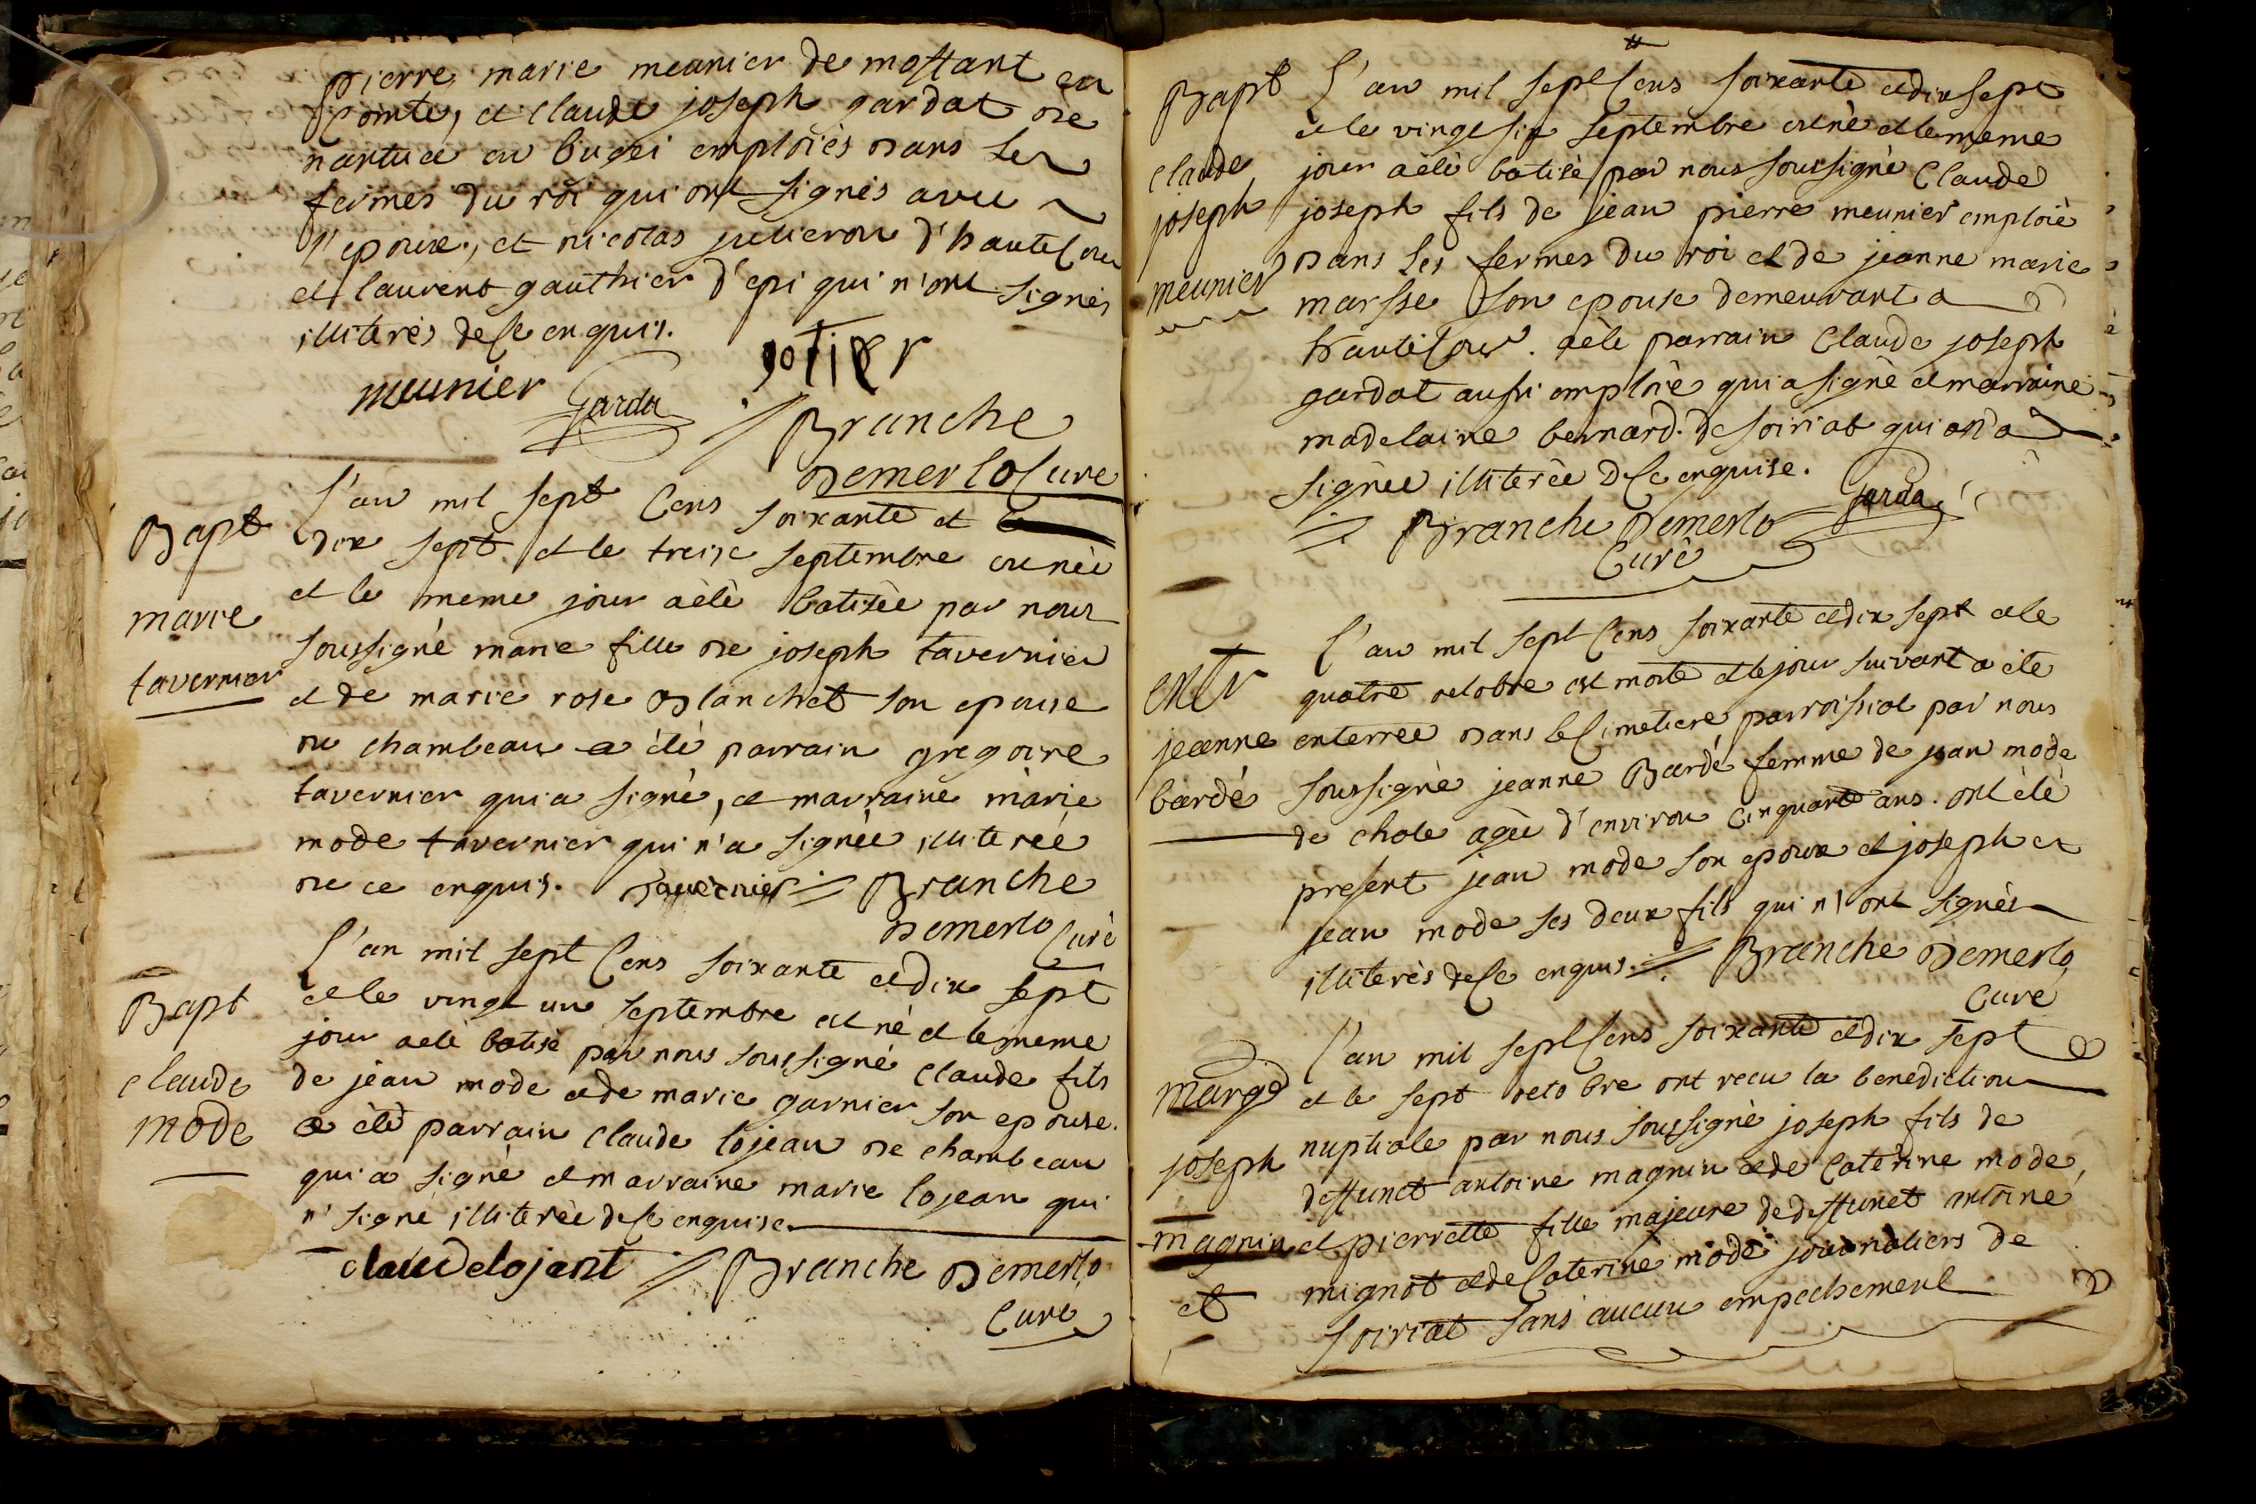 pierre marie meunier de mostant en
Comté, et claude joseph gardat de
nantua en bugei emploiés dans les
fermes du roi qui ont signés avec
l'epoux, et nicolas julieron d'hautecour
et laurent gauthier d'epi qui n'ont signés
illiterés de ce enquis.
meunier garda gotier
Branche
Demerlo Curé
Bapt
marie
tavernier
L'an mil sept Cens soixante et
dix sept et le treise septembre est née
et le meme jour a été batisée par nous
soussigné marie fille de joseph tavernier
et de marie rose blanchet son epouse
du chambeau a été parrain gregoire
tavernier qui a signé, et marraine marie
mode tavernier qui n'a signée illiterée
de ce enquis. Tavernier Branche
Demerlo Curé
Bapt
claude
mode
L'an mil sept Cens soixante et dix sept
et le vingt un septembre est né et le meme
jour a été batisé par nous soussigné claude fils
de jean mode et de marie garnier son epouse.
a été parrain claude lojean de chambeau
qui a signé et marraine marie lojean qui
n' signé illiterée de ce enquise
claudelojant Branche Demerlo
Curé
Bapt
claude
joseph
meunier
L'an mil sept Cens soixante et dix sept
et le vingt six septembre est né et le meme
jour a été batisé par nous soussigné Claude
joseph fils de jean pierre meunier emploié
dans les fermes du roi et de jeanne marie
marsse son epouse demeurant a
hautecour. a été parrain Claude joseph
gardat aussi emploié qui a signé et marraine
madelaine bernard de soiriat qui on a
signée illiterée de ce enquise.
Branche Demerlo garda
Curé
entr
jeanne
bardé
L'an mil sept Cens soixante et dix sept et le
quatre octobre est morte et le jour suivant a été
enterrée dans le Cimetiere parroissial par nous
soussigné jeanne Bardé femme de jean mode
de chole agée d'environ Cinquante ans. ont été
present jean mode son epoux et joseph et
jean mode ses deux fils qui n'ont signés
illiterés de ce enquis. Branche Demerlo
Curé
mariage
joseph
magnin
et
L'an mil sept Cens soixante et dix sept
et le sept octobre ont recu la benediction
nuptiale par nous soussigné joseph fils de
deffunct antoine magnin et de Caterine mode,
et pierrette fille majeure de deffunct antoine
mignot et de Caterine mode journaliers de
soiriat sans aucun empechement